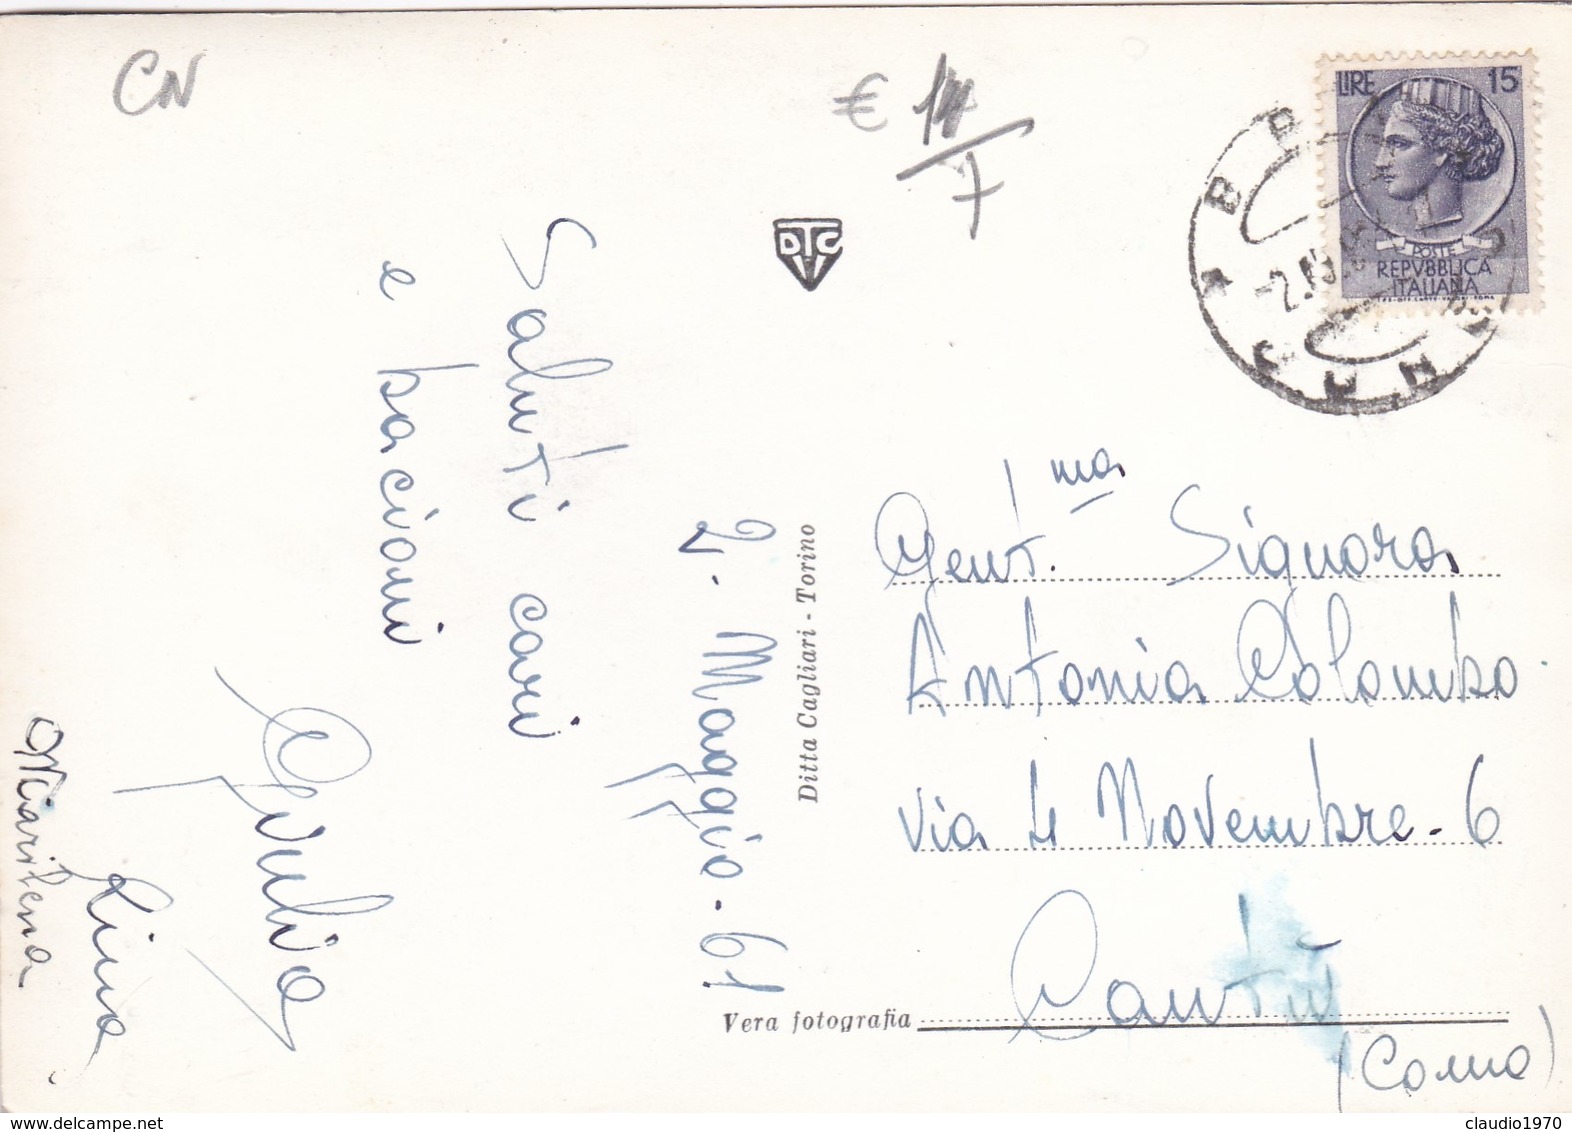 CN
€ 7
LIRE 15
POSTE
REPVBBLICA
ITALIANA
DTC
2. Maggio. 61
Saluti cari
e bacioni
Giulia
Lina
Marilena
Ditta Cagliari - Torino
Vera fotografia
Gent.ma Signora
Antonia Colombo
Via 4 Novembre - 6
Cantù
(Como)
www.delcampe.net
claudio1970